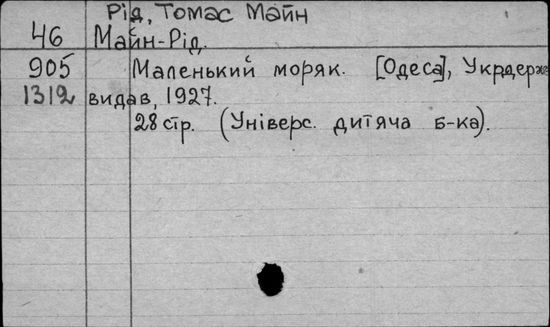 Рід, Томас Майн
46 Майн-Рід.
905 Маленький моряк. [Одеса], Укрдерж
1312 видав, 1927.
28 стр. (Універс. дитяча б-ка).